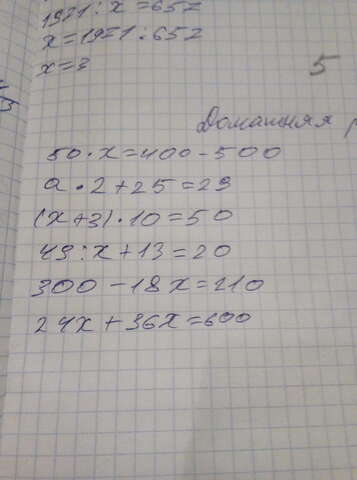 1971 : x = 657
x = 1971 : 657
x = 3
5
Домашняя
50 · x = 400 - 500
a · 2 + 25 = 29
(x + 3) · 10 = 50
49 : x + 13 = 20
300 - 18x = 210
24x + 36x = 600